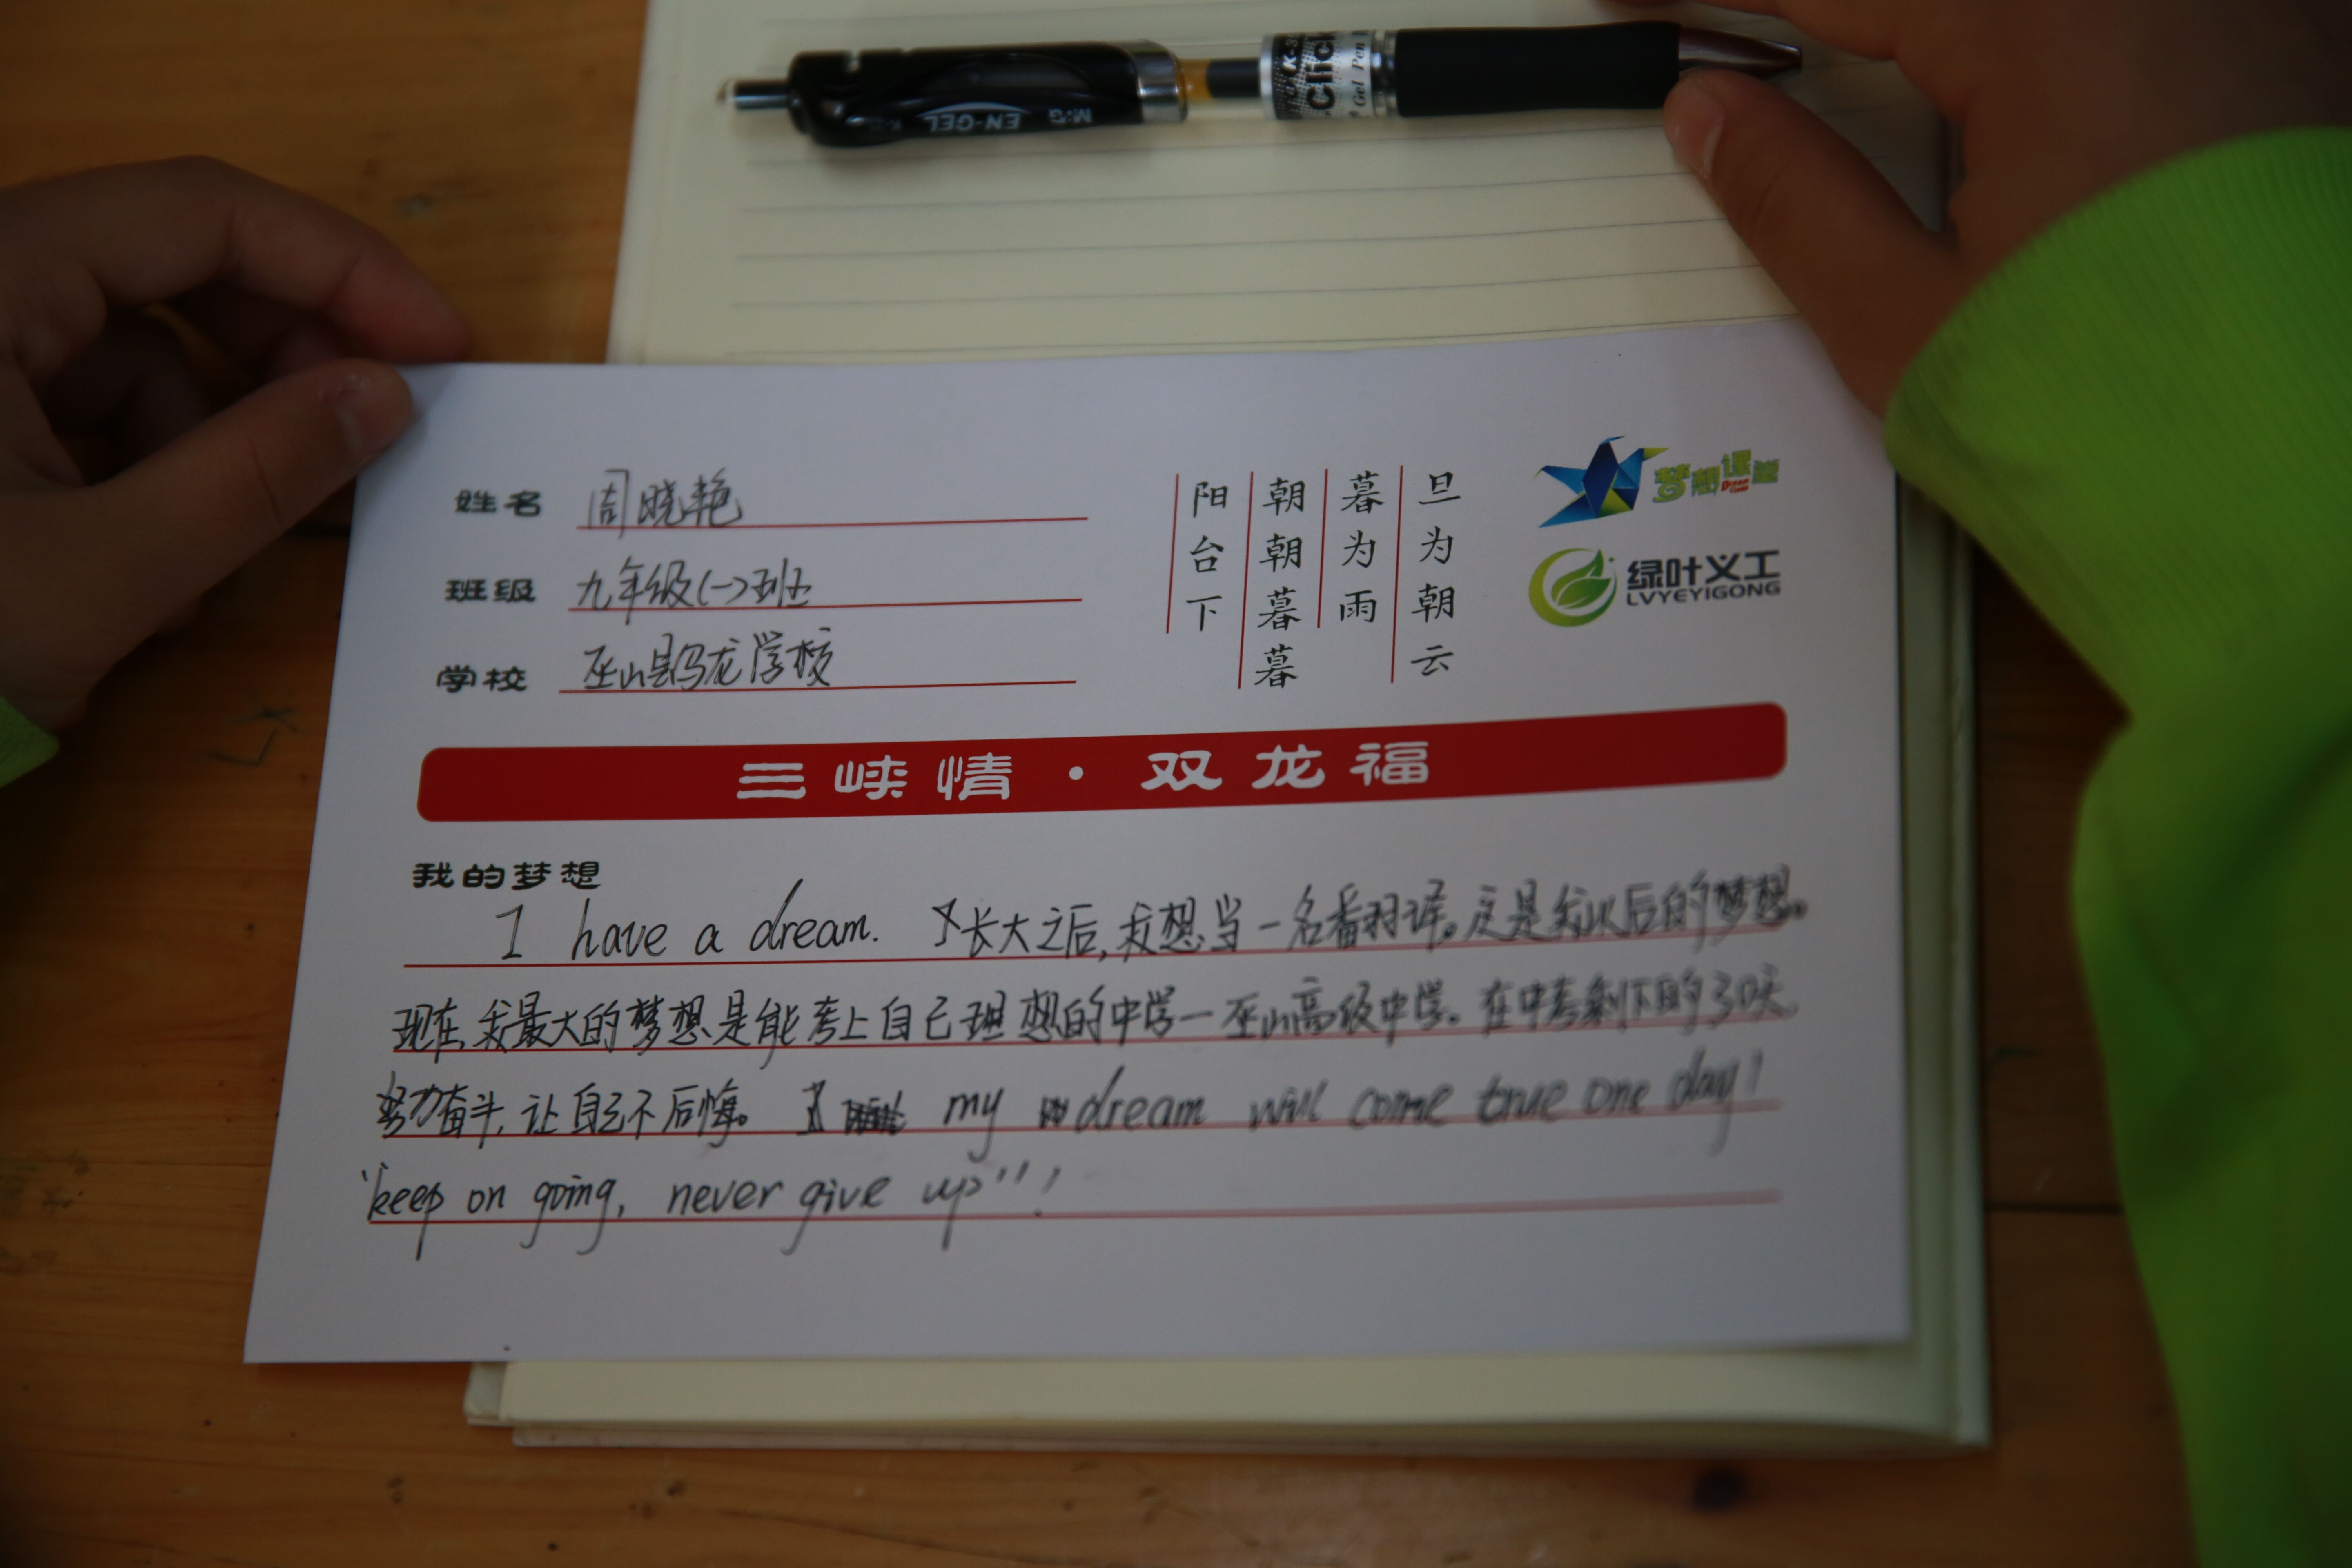 M&G EN-GEL K-35
K-35
Click
Gel Pen
姓名 周晓艳
班级 九年级(一)班
学校 巫山县乌龙学校
旦为朝云
暮为雨
朝朝暮暮
阳台下
梦想课堂
Dream Class
绿叶义工
LVYEYIGONG
三峡情·双龙福
我的梦想
I have a dream. 长大之后,我想当一名翻译。这是我以后的梦想。
现在,我最大的梦想是能考上自己理想的中学—巫山高级中学。在中考剩下的30天
努力奋斗,让自己不后悔。 my dream will come true one day!
"keep on going, never give up"!